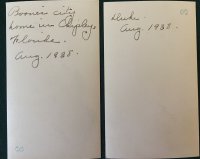 Boone's city
home in Chipley
Florida.
Aug. 1938.
Duke.
Aug. 1938.